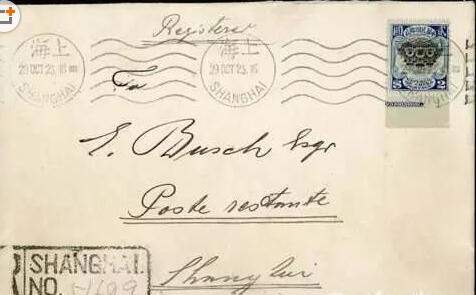 Registered
海上
29 OCT 23. 16
SHANGHAI
海上
29 OCT 23. 16
SHANGHAI
To
E. Busch Esqr
Poste restante
Shanghai
SHANGHAI.
NO.